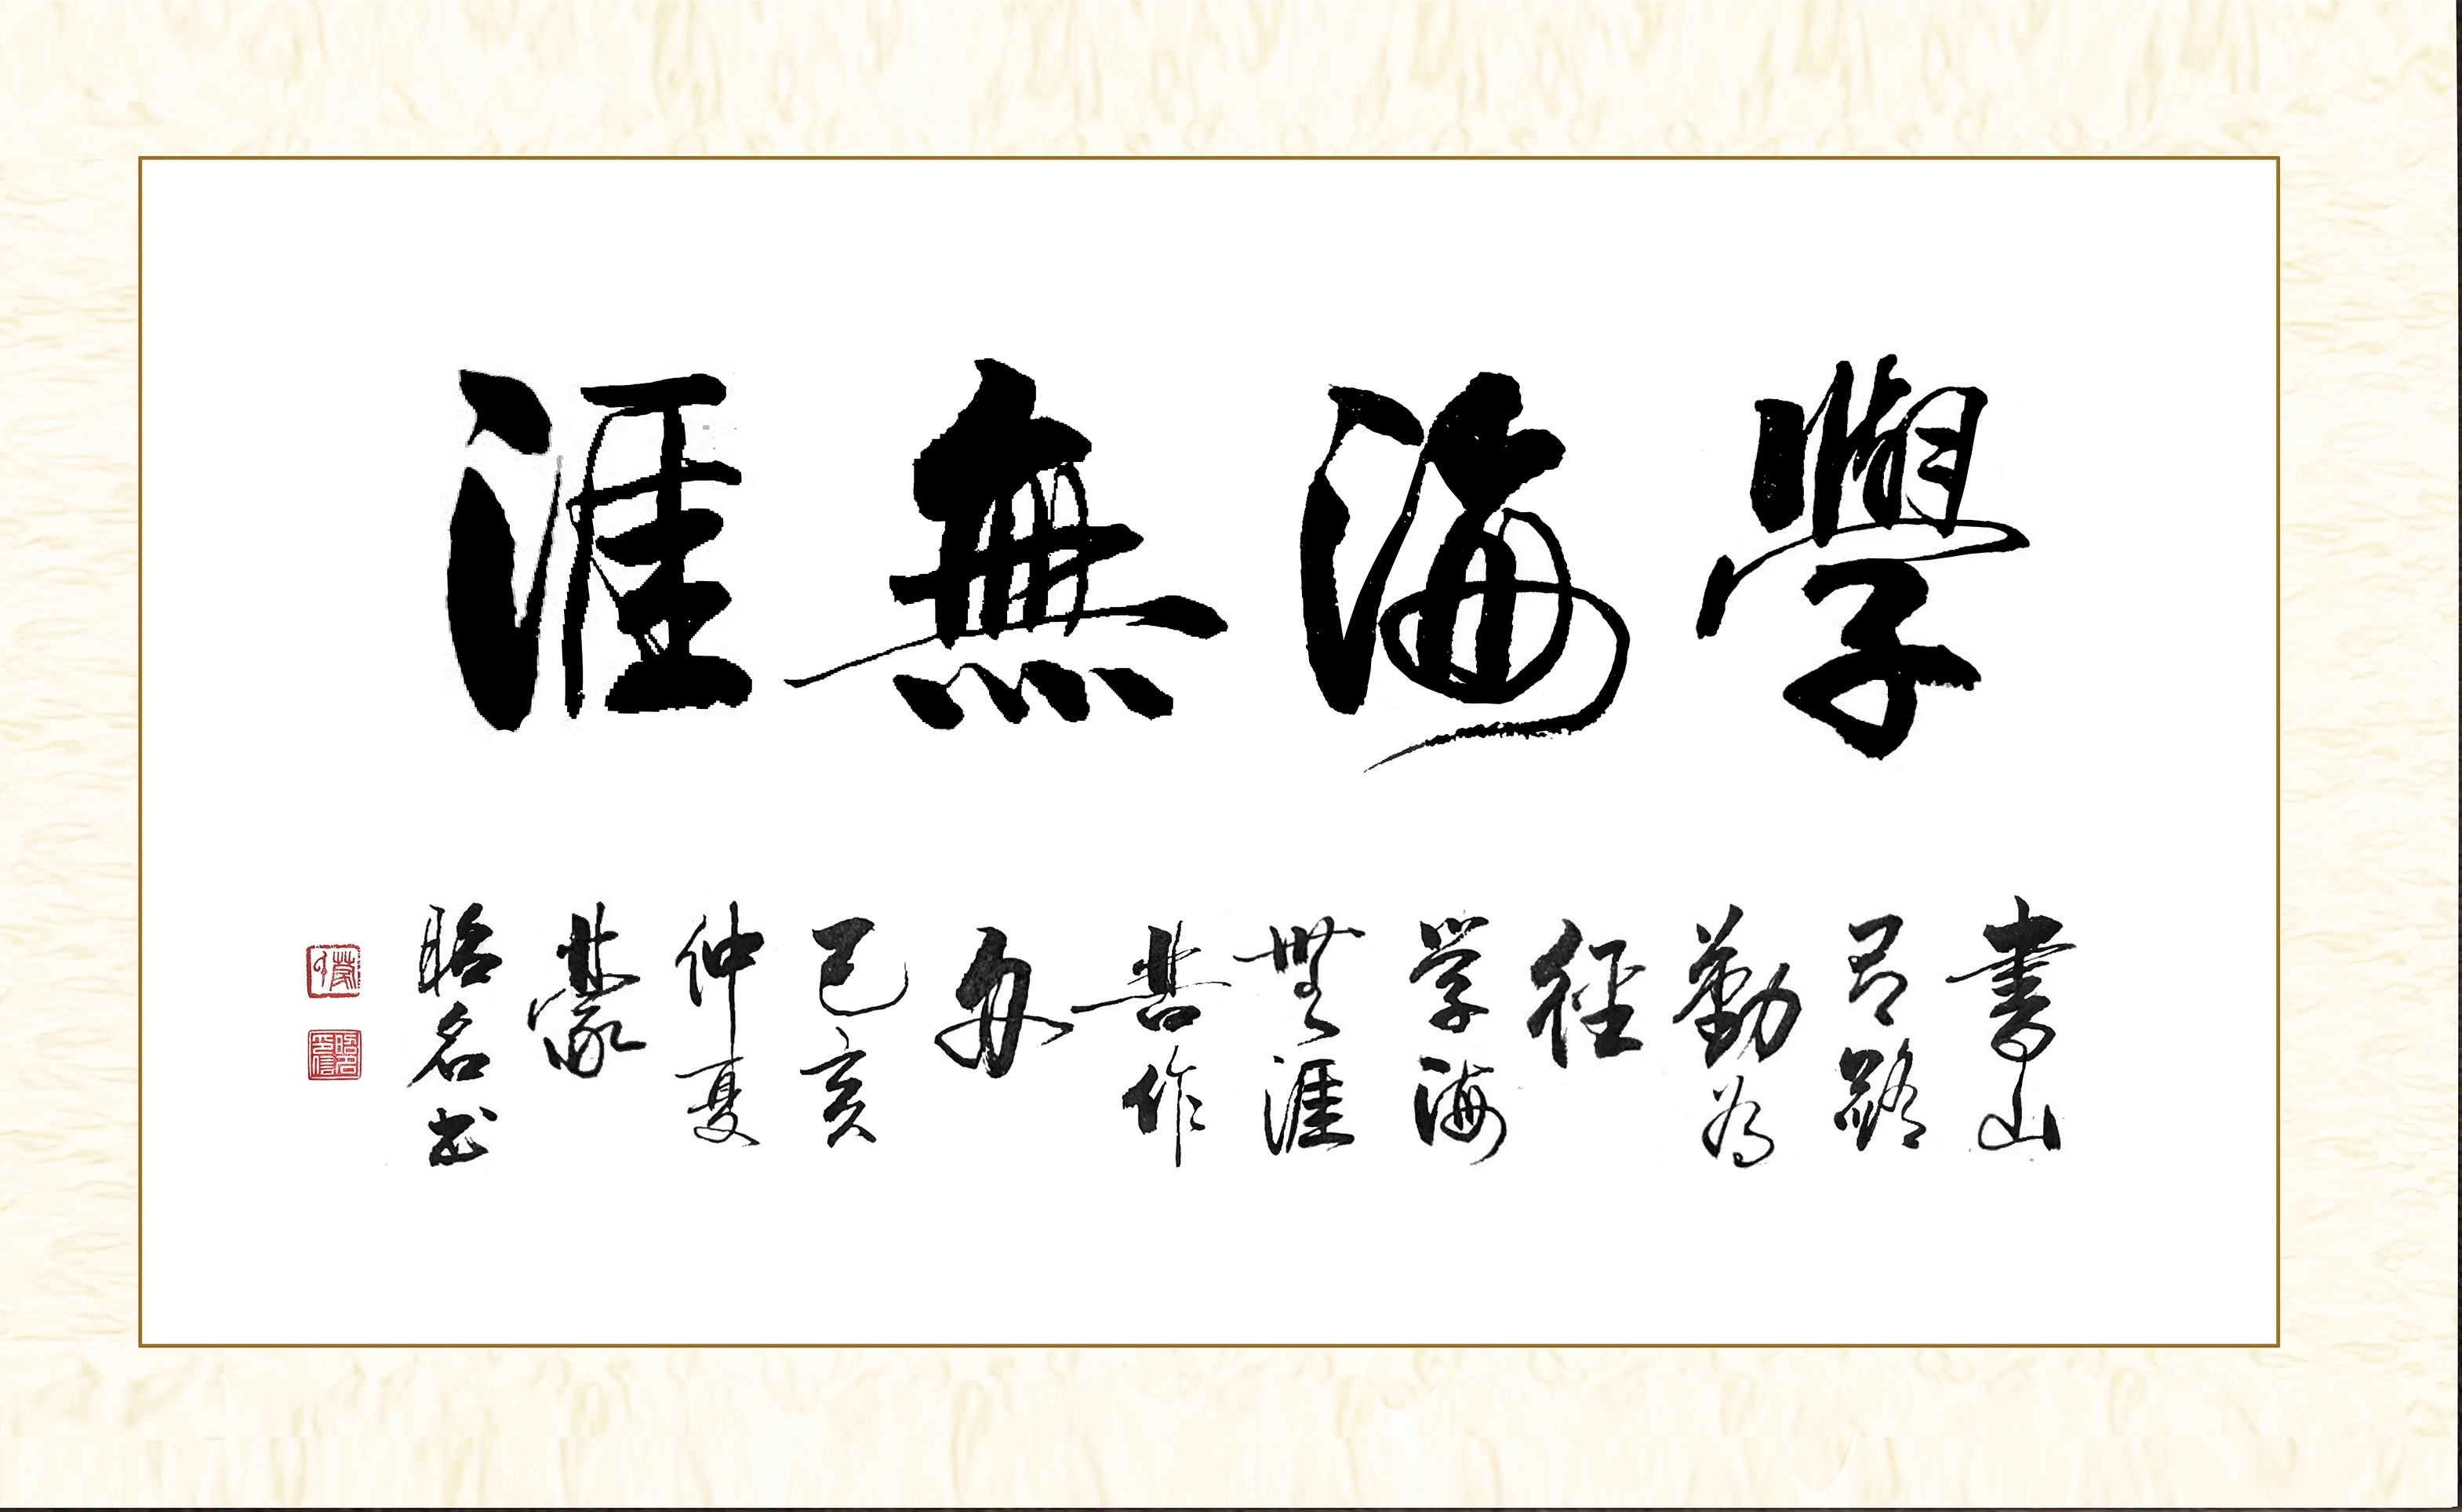 學海無涯
書山
有路
勤為
徑
学海
無涯
苦作
舟
己亥
仲夏
蒙
昭名书